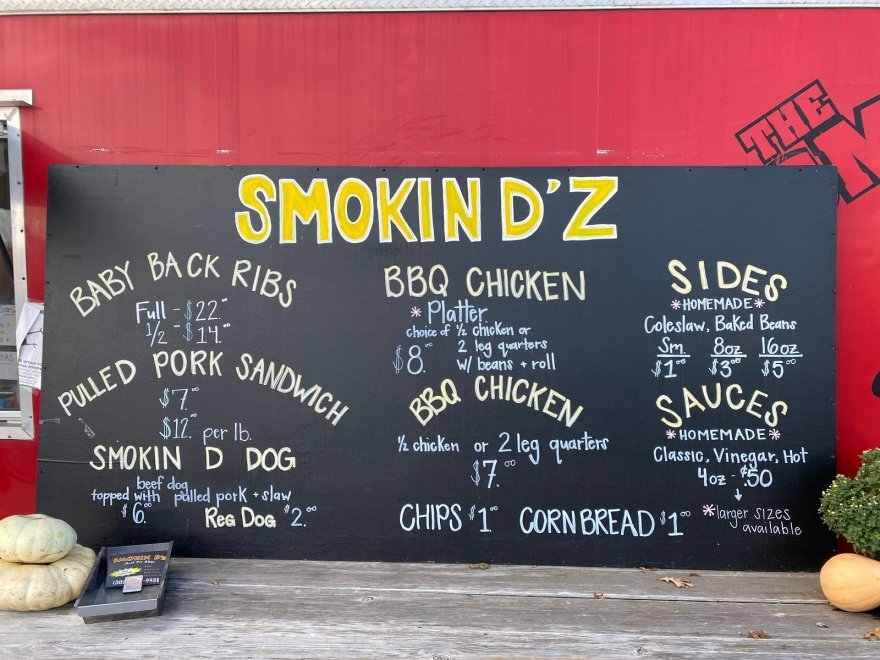 THE
SMOKIN D'Z
BABY BACK RIBS
Full - $22.00
1/2 - $14.00
PULLED PORK SANDWICH
$7.00
$12.00 per lb.
SMOKIN D DOG
beef dog
topped with pulled pork + slaw
$6.00
REG DOG $2.00
BBQ CHICKEN
* Platter
choice of 1/2 chicken or
2 leg quarters
$8.00 w/ beans + roll
BBQ CHICKEN
1/2 chicken or 2 leg quarters
$7.00
CHIPS $1.00 CORNBREAD $1.00
SIDES
*HOMEMADE*
Coleslaw, Baked Beans
Sm. 8oz 16oz
$1.00 $3.00 $5.00
SAUCES
*HOMEMADE*
Classic, Vinegar, Hot
4oz - $.50
*larger sizes
available
SMOKIN D'Z